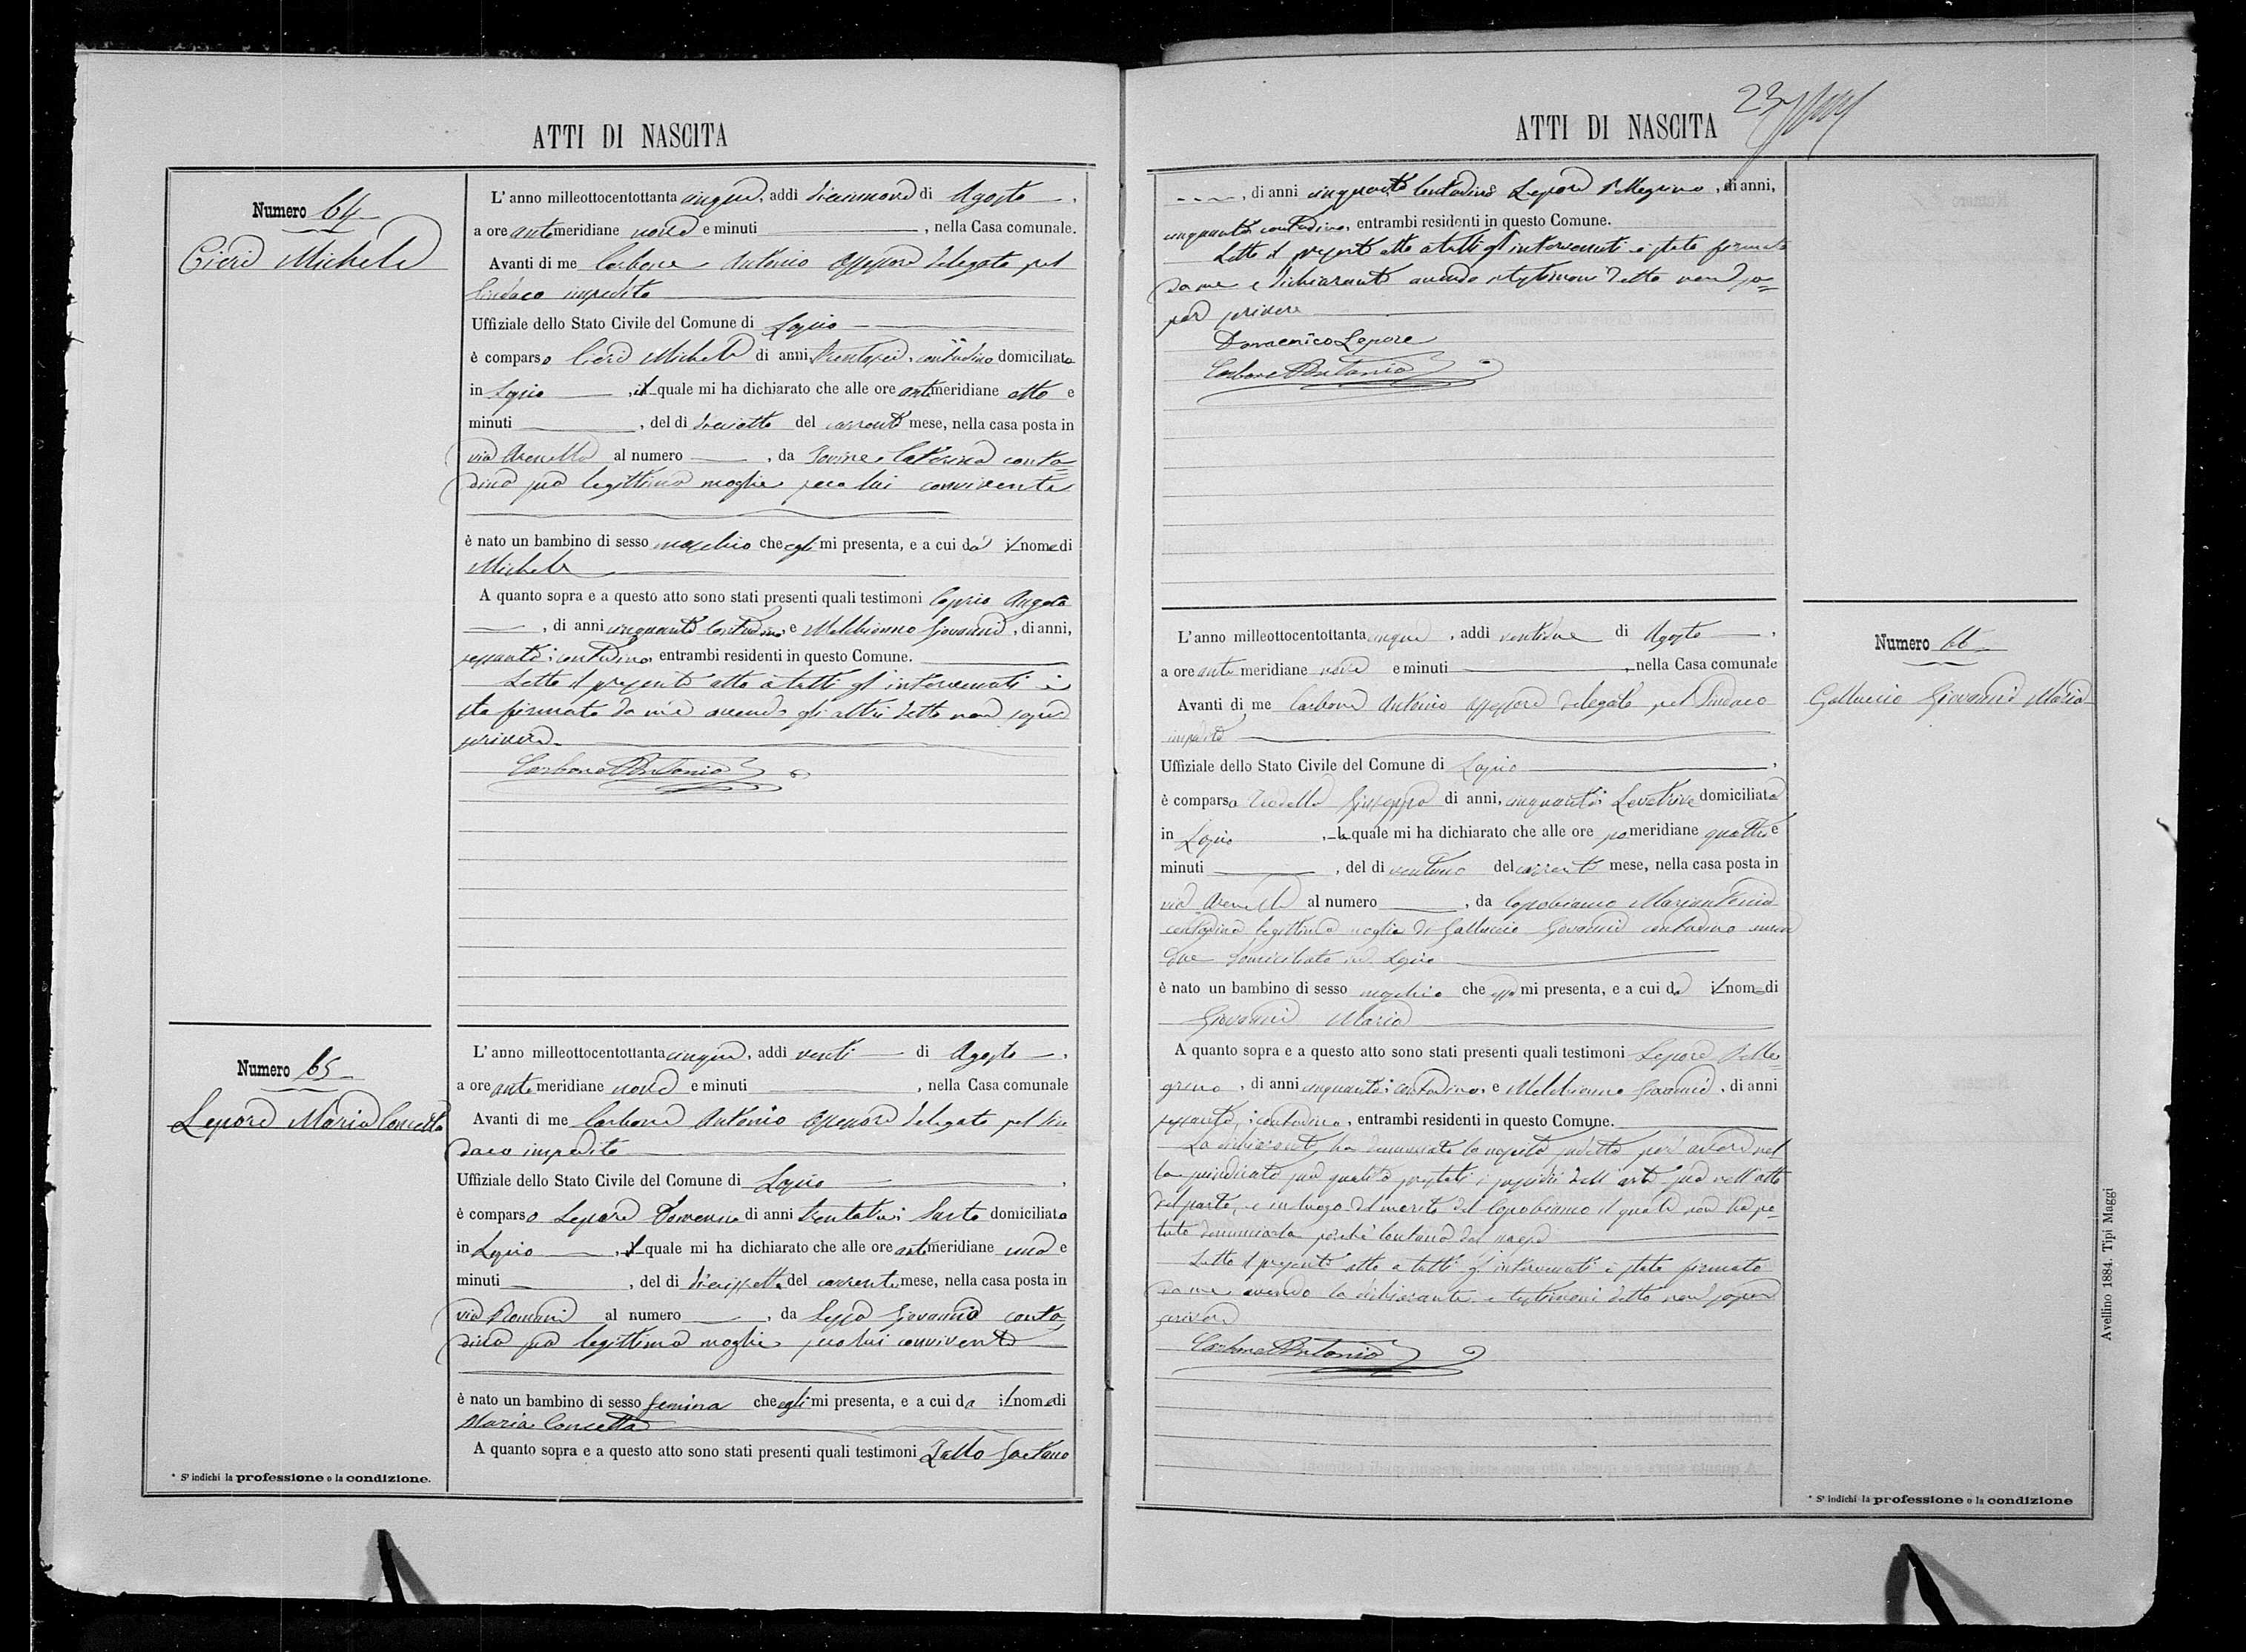 ATTI DI NASCITA
Numero 64
Cieri Michele
L'anno milleottocentottanta cinque, addi diciannove di Agosto
a ore antimeridiane nove e minuti, nella Casa comunale.
Avanti di me Carbone Antonio Assessore delegato pel
Sindaco impedito
Uffiziale dello Stato Civile del Comune di Lapio
è comparso Cieri Michele di anni trentasei, contadino domiciliato
in Lapio, il quale mi ha dichiarato che alle ore antimeridiane otto e
minuti, del di diciotto del corrente mese, nella casa posta in
via Arenella al numero, da Iovine Caterina conta=
dina sua legittima moglie seco lui convivente
è nato un bambino di sesso maschio che egli mi presenta, e a cui dà il nome di
Michele
A quanto sopra e a questo atto sono stati presenti quali testimoni Caprio Angelo
, di anni cinquanta contadino e Melchionno Giovanni, di anni,
sessanta: contadino, entrambi residenti in questo Comune.
Letto il presente atto a tutti gl'intervenuti è
sta firmato da me avendo gli altri detto non sapere
scrivere.
Carbone Antonio
Numero 65
Lepore Maria Concetta
L'anno milleottocentottanta cinque, addi venti di Agosto,
a ore antemeridiane nove e minuti, nella Casa comunale
Avanti di me Carbone Antonio Assessore delegato pel Sin
daco impedito
Uffiziale dello Stato Civile del Comune di Lapio,
è comparso Lepore Domenico di anni trentatre: Sarto domiciliato
in Lapio, il quale mi ha dichiarato che alle ore antimeridiane una e
minuti, del di diciassette del corrente mese, nella casa posta in
via Romani al numero, da Seppa Giovanna conta
dina sua legittima moglie seco lui convivente
è nato un bambino di sesso femina che egli mi presenta, e a cui da il nome di
Maria Concetta
A quanto sopra e a questo atto sono stati presenti quali testimoni Zollo Gaetano
* S' indichi la professione o la condizione.
ATTI DI NASCITA
23
, di anni cinquanta contadino Lepore Pellegrino, di anni,
cinquanta contadino, entrambi residenti in questo Comune.
Letto il presente atto a tutti gl'intervenuti è stato firmato
da me e dichiarante avendo i testimoni detto non sa=
per scrivere
Domenico Lepore
Carbone Antonio
Numero 66
Galluccio Giovanni Maria
L'anno milleottocentottanta cinque, addi ventidue di Agosto,
a ore antemeridiane nove e minuti, nella Casa comunale
Avanti di me Carbone Antonio Assessore delegato pel Sindaco
impedito
Uffiziale dello Stato Civile del Comune di Lapio,
è comparsa Giuseppa di anni, cinquanta: Levatrice domiciliata
in Lapio, la quale mi ha dichiarato che alle ore pomeridiane quattro e
minuti, del di ventuno del corrente mese, nella casa posta in
via Arenella al numero, da Capobianco Mariantonia
contadina legittima moglie di Galluccio Giovanni contadino
due domiciliato in Lapio
è nato un bambino di sesso maschio che essa mi presenta, e a cui da il nome di
Giovanni Maria
A quanto sopra e a questo atto sono stati presenti quali testimoni Lepore Pelle
grino, di anni cinquanta: contadino, e Melchionno Giovanni, di anni
sessanta: contadino, entrambi residenti in questo Comune.
La dichiarante ha denunciato la nascita sudetta per avere nel
la suindicata sua qualità prestati i sussidii dell'arte sua nell'atto
del parto, e in luogo del marito del Capobianco il quale non ha po=
tuto denunciarla perchè lontano dal paese
Letto il presente atto a tutti gl'intervenuti è stato firmato
da me avendo la dichiarante e testimoni detto non sapere
scrivere
Carbone Antonio
* S' indichi la professione o la condizione
Avellino 1884. Tipi Maggi